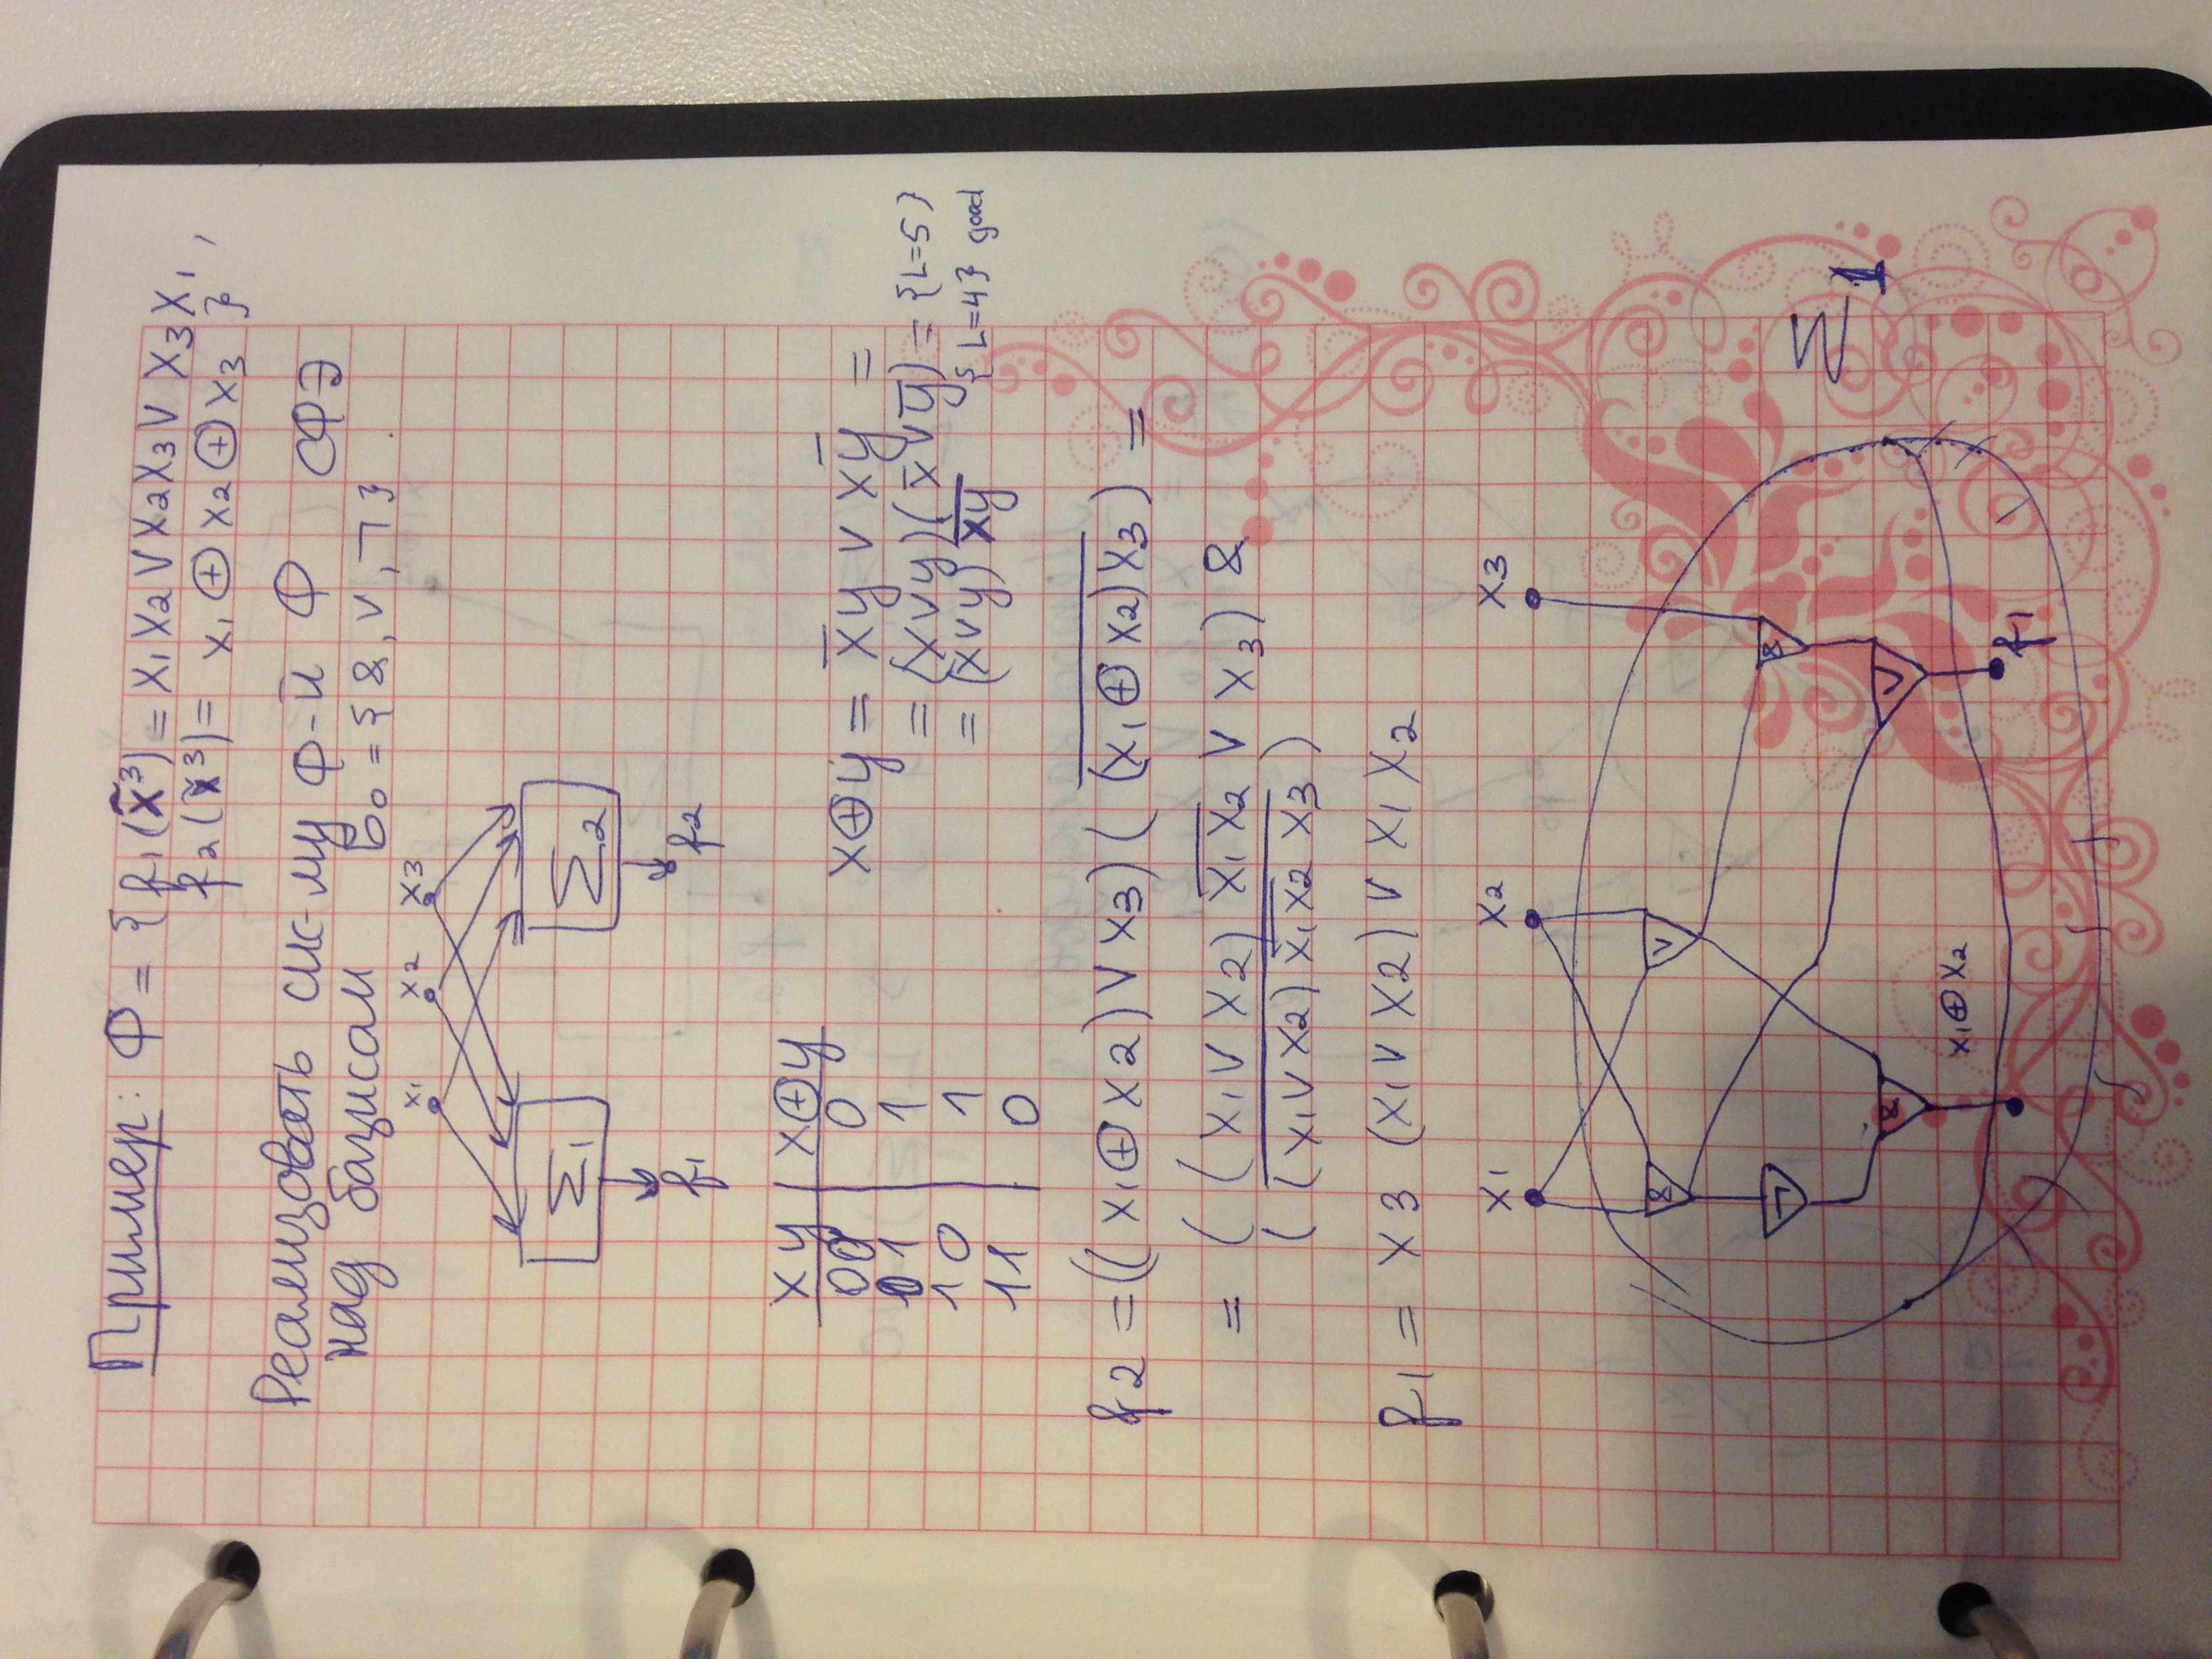 Пример: Ф = { f₁(x̃³) = x₁x₂ ∨ x₂x₃ ∨ x₃x₁,
f₂(x̃³) = x₁ ⊕ x₂ ⊕ x₃ }
Реализовать сис-му ф-й Ф СФЭ
над базисом Б₀ = {&, ∨, ¬}.
x₁ x₂ x₃
Σ₁ Σ₂
f₁ f₂
x y | x⊕y
0 0 | 0
0 1 | 1
1 0 | 1
1 1 | 0
x⊕y = x̅y ∨ xy̅ =
= (x∨y)(x̅∨y̅) = {L=5}
= (x∨y) x͞y͞ {L=4} good
f2 = ((x₁⊕x₂)∨x₃)( (x͞₁͞⊕͞x͞₂͞)͞x͞₃͞ ) =
= ((x₁∨x₂) x͞₁͞x͞₂͞ ∨ x₃) &
( (͞x͞₁͞∨͞x͞₂͞)͞ ͞x͞₁͞x͞₂͞ ͞x͞₃͞ )
f₁ = x3 (x₁∨x2) ∨ x₁x₂
x₁ x₂ x₃
& ∨ &
¬ ∨
& f₁
x₁⊕x₂
Σ1